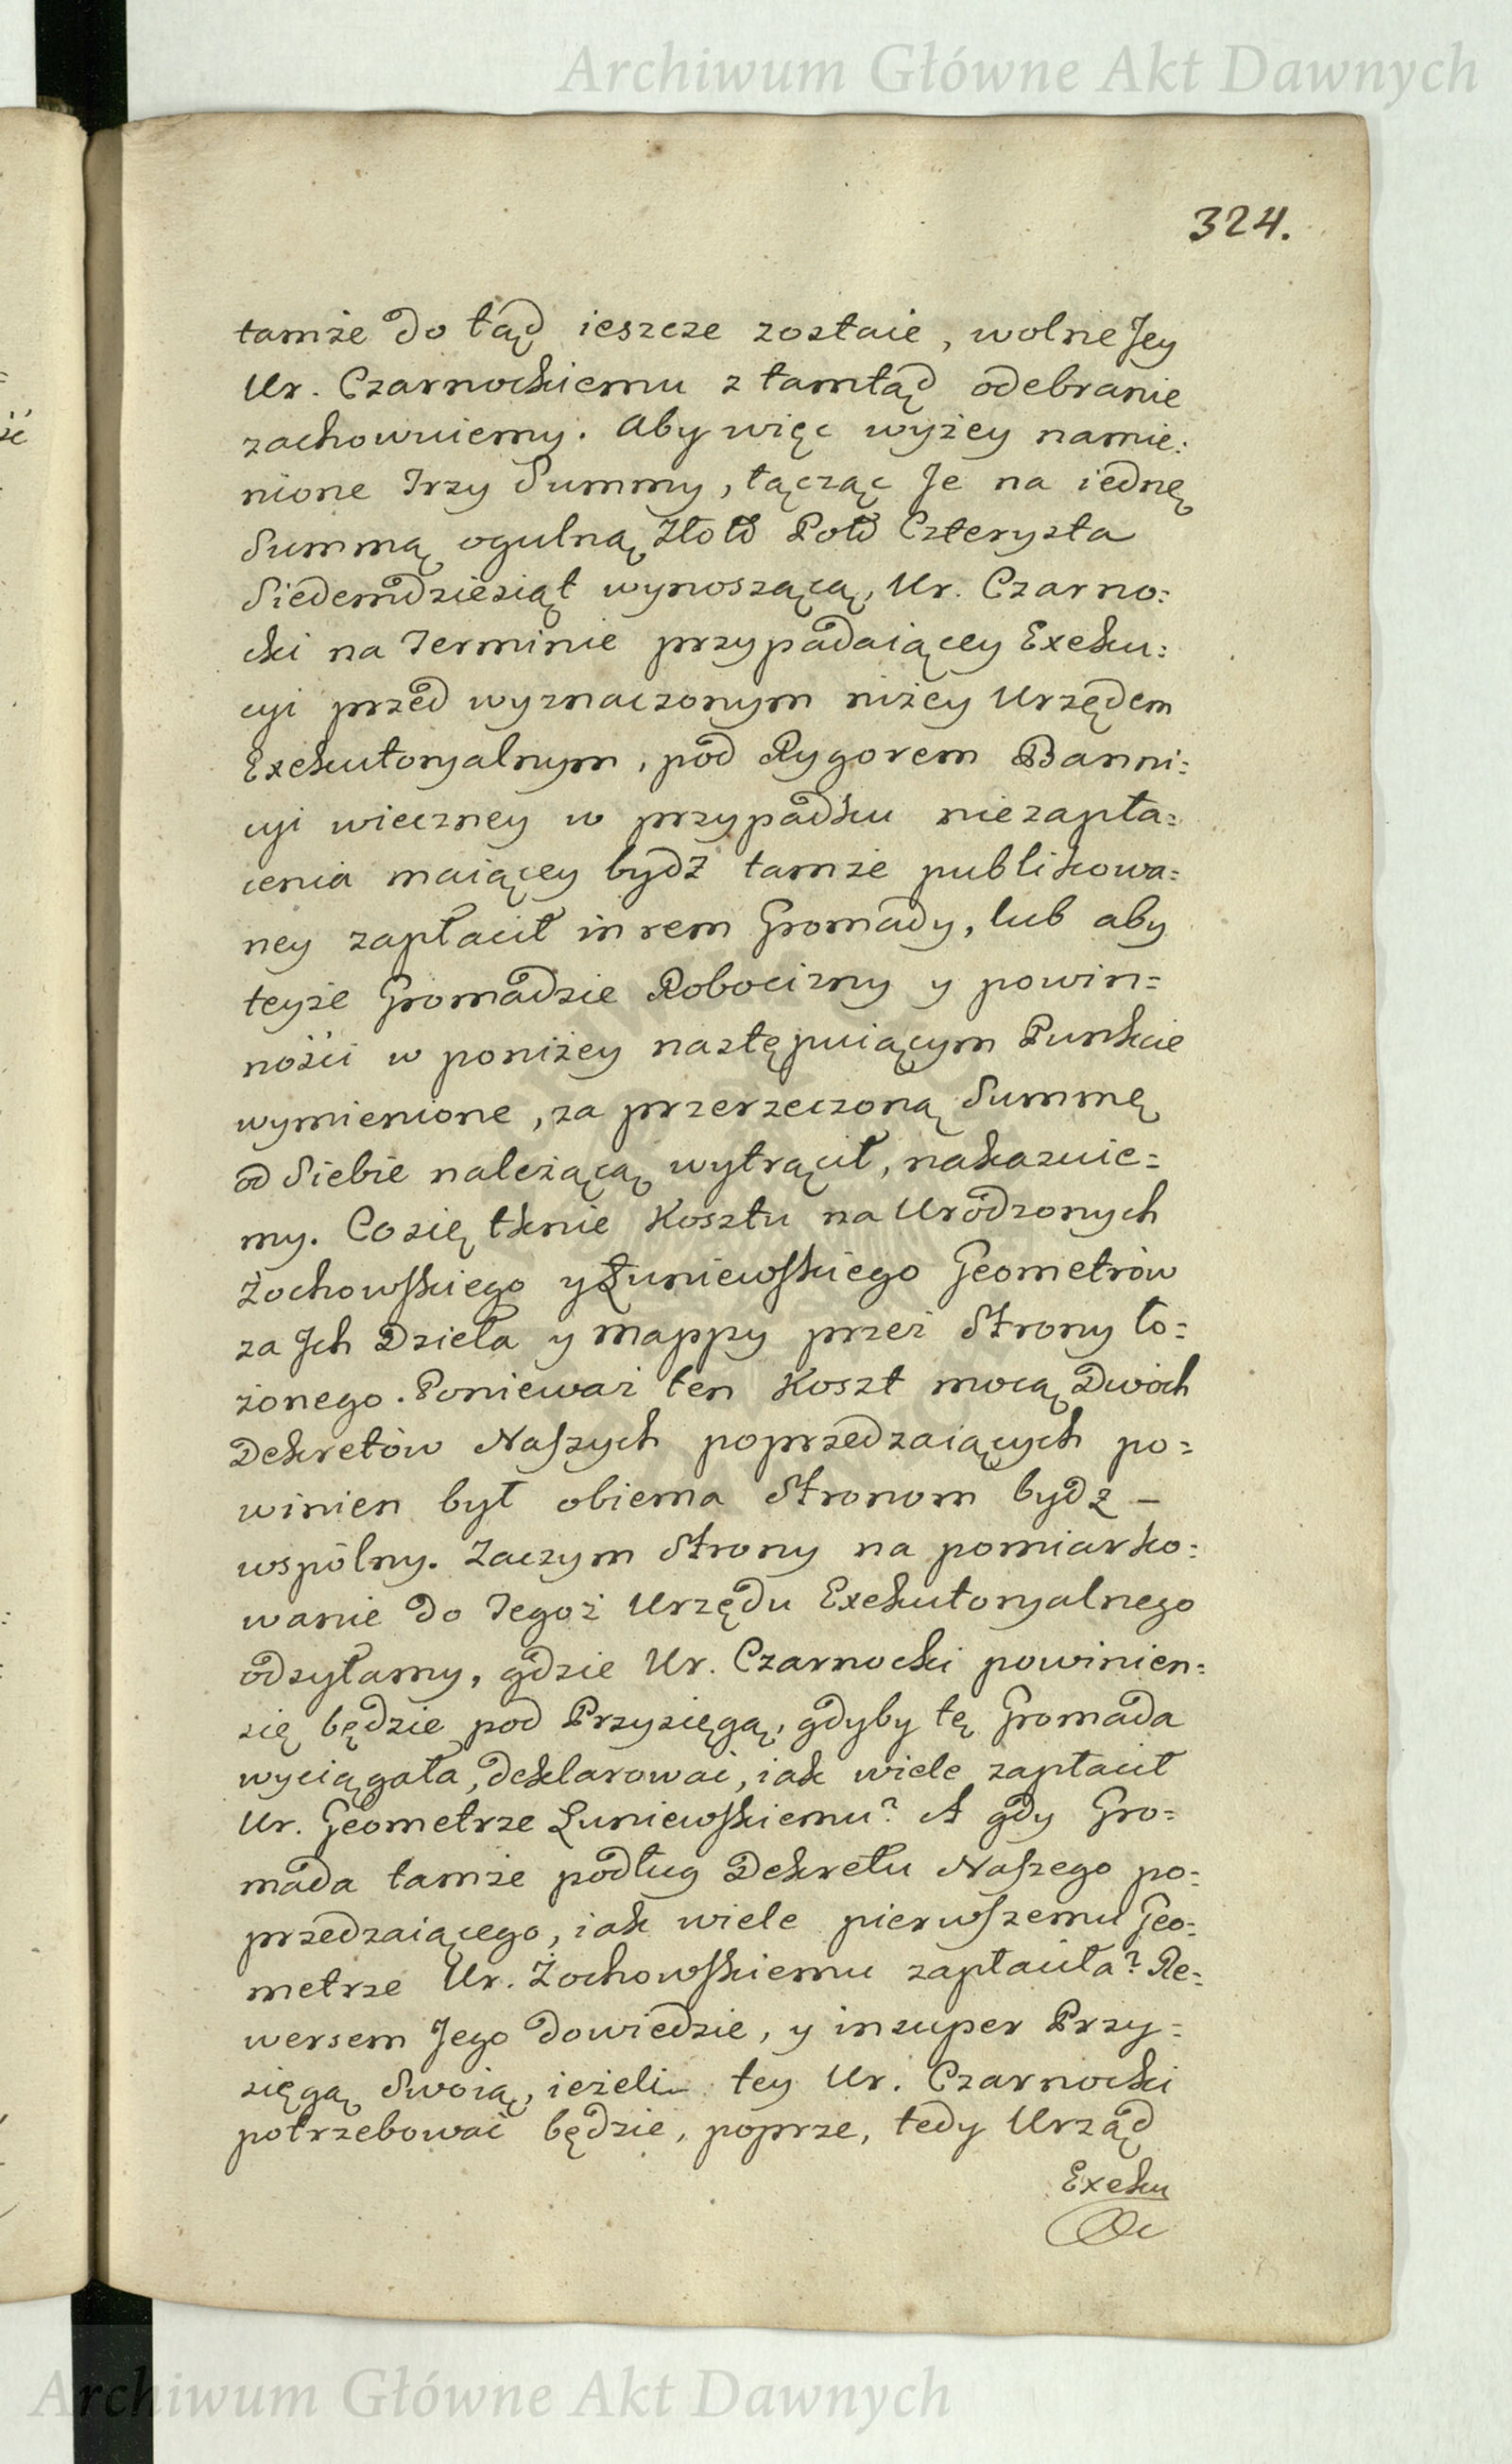 Archiwum Główne Akt Dawnych
324.
tamże do tąd ieszcze zostaie, wolne Jey
Ur. Czarnockiemu z tamtąd odebranie
zachowuiemy. Aby więc wyżey namie:
nione Trzy Summy, łącząc Je na iednę
Summą ogulną Złotd Pold Czterysta
Siedemdziesiąt wynoszącą, Ur. Czarno:
cki na Terminie przypadaiącey Exeku:
cyi przed wyznaczonym niżey Urzędem
Exekutoryalnym, pod Rygorem Banni:
cyi wieczney w przypadku niezapła:
cenia maiącey bydź tamże publikowa:
ney zapłacił in rem Gromady, lub aby
teyże Gromadzie Robocizny y powin=
ności w poniżey następuiącym Punkcie
wymienione, za przerzeczoną Summę
od Siebie należącą wytrącił, nakazuie=
my. Co się tknie Kosztu na Urodzonych
Żochowskiego y Łuniewskiego Geometrów
za Jch Dzieła y Mappy przez Strony ło=
żonego. Ponieważ ten Koszt mocą Dwóch
Dekretów Naszych poprzedzaiących po=
winien był obiema Stronom bydz –
wspólny. Zaczym Strony na pomiarko:
wanie do Tegoż Urzędu Exekutoryalnego
odsyłamy, gdzie Ur. Czarnocki powinien=
się będzie pod Przysięgą, gdyby tę Gromada
wyciągała, deklarować, iak wiele zapłacił
Ur. Geometrze Łuniewskiemu? A gdy Gro=
mada tamże podług Dekretu Naszego po=
przedzaiącego, iak wiele pierwszemu Geo=
metrze Ur. Żochowskiemu zapłaciła? Re=
wersem Jego dowiedzie, y insuper Przy=
sięgą Swoią, ieżeli tey Ur. Czarnocki
potrzebować będzie, poprze, tedy Urząd
Exeku
Archiwum Główne Akt Dawnych